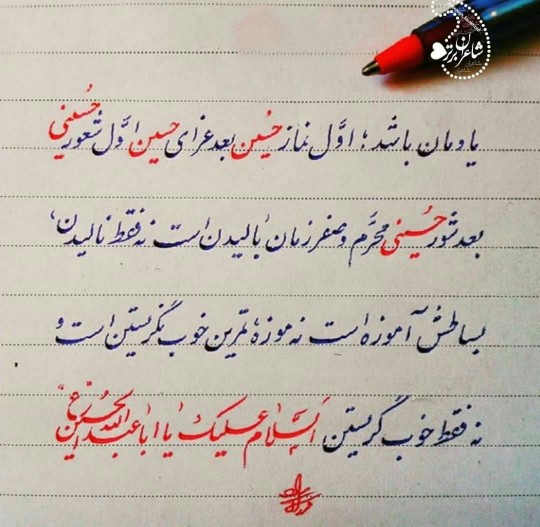 شاعران برتر
یادمان باشد؛ اوّل نماز حُسین بعد عزای حسین اوّل شعور حُسینی
بعد شور حُسینی محرَّم و صفر زمان بالیدن است نه فقط نالیدن،
بساطش آموزه است نه موزه، تمرین خوب نگریستن است و
نه فقط خوب گریستن اَلسَّلامُ عَلیکَ یا اباعبدالله الحُسین (ع)